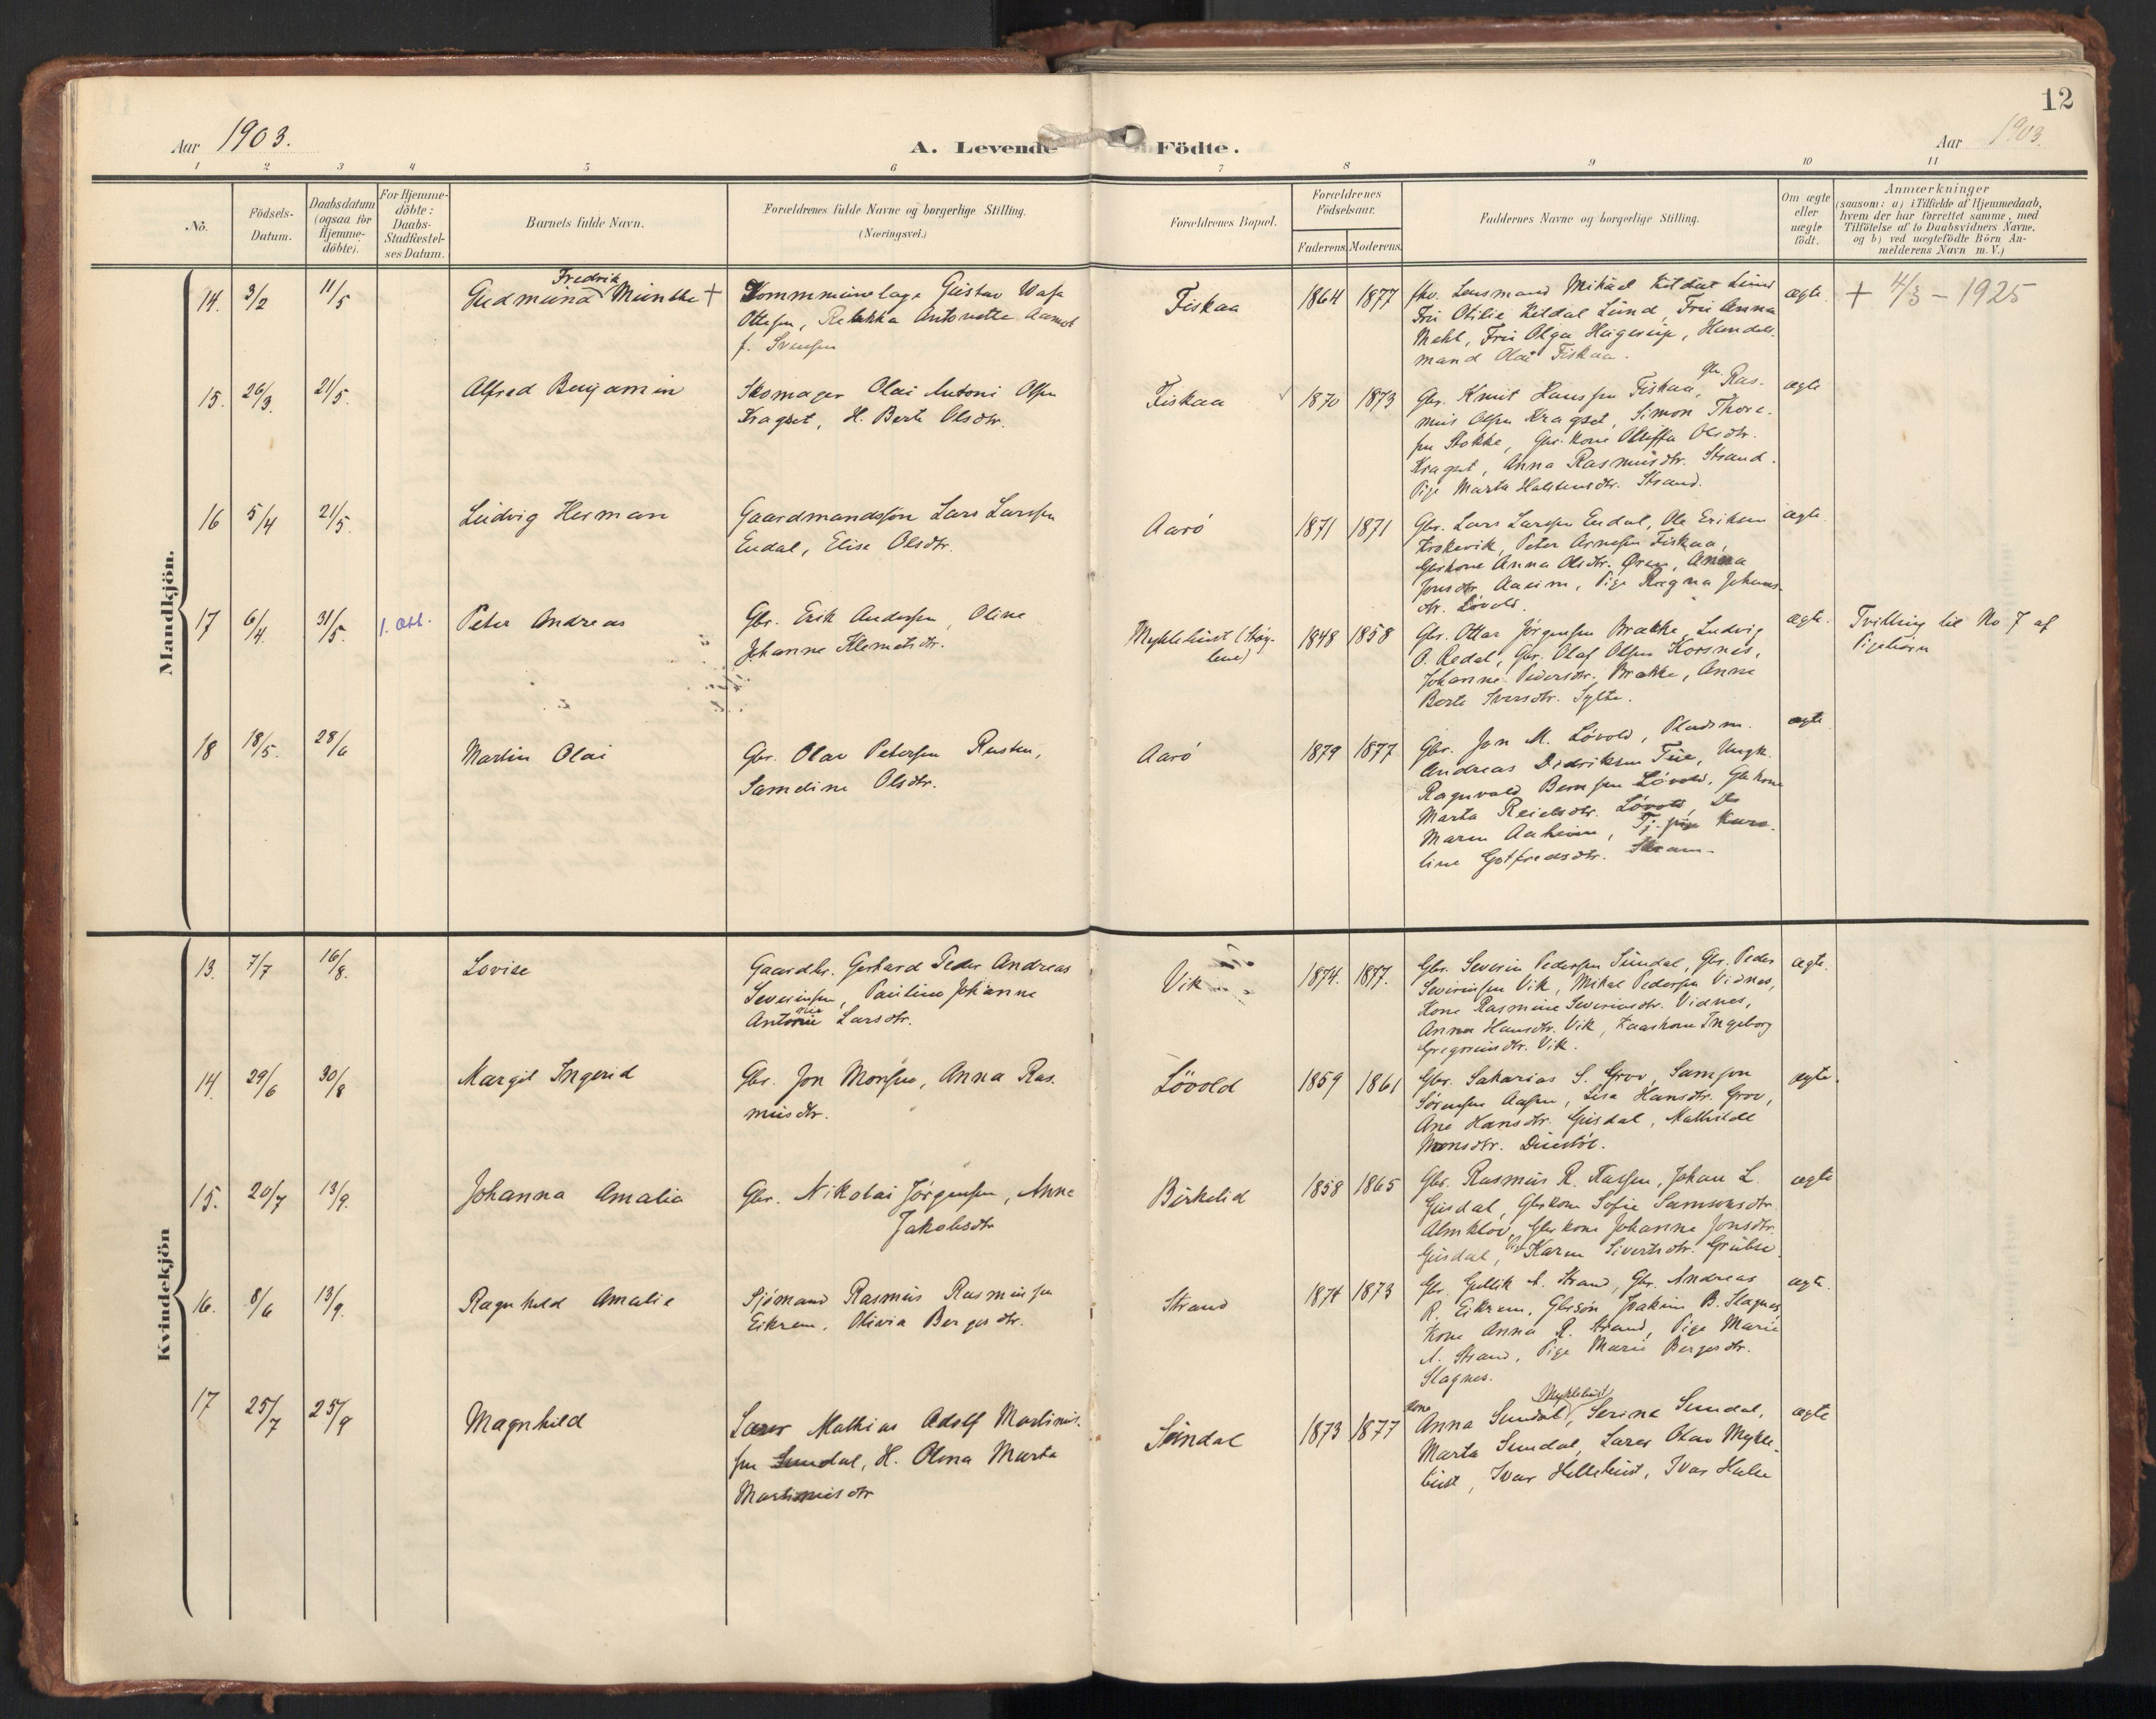 12
Aar 1903.
A. Levende Födte.
Aar 1903
1 2 3 4 5 6 7 8 9 10 11
No.
Födsels-Datum.
Daabsdatum (ogsaa for Hjemme-döbte).
For Hjemme-döbte: Daabs-Stadfæstel-ses Datum.
Barnets fulde Navn.
Forældrenes fulde Navne og borgerlige Stilling. (Næringsvei.)
Forældrenes Bopæl.
Forældrenes Födselsaar.
Faderens. Moderens.
Faddernes Navne og borgerlige Stilling.
Om ægte eller uægte födt.
Anmærkninger
(saasom: a) i Tilfælde af Hjemmedaab,
hvem der har forrettet samme, med
Tilföielse af to Daabsvidners Navne,
og b) ved uægtefödte Börn An-
melderens Navn m. V.)
Mandkjön.
14. 3/2 11/5
Fredrik
Gudmund Munthe +
Kommunelæge Gustav Wasa
Ottesen, Rebekka Antonette
f. Svensen
Fiskaa
1864 1877
fhv. Lensmand Mikael Kildal Lund
Fru Otilie Kildal Lund, Fru Anna
Mehl, Fru Olga Hagerup, Handels-
mand Olai Fiskaa.
ægte.
+ 4/3 - 1925
15. 26/3. 21/5.
Alfred Benjamin
Skomager Olai Antoni Olsen
Kragset, H. Berte Olsdtr.
Fiskaa
1870 1873
Gbr. Knut Hansen Fiskaa, Gbr. Ras-
mus Olsen Kragset, Simon Thore-
sen Stokke, Gbr. kone Oliffa Olsdtr.
Kragset, Anna Rasmusdtr. Strand.
Pige Marta Halstensdtr. Strand.
ægte
16 5/4 21/5.
Ludvig Herman
Gaardmandssøn Lars Larsen
Endal, Elise Olsdtr.
Aarö
1871 1871
Gbr. Lars Larsen Endal, Ole Eriksen
Krokevik, Peter Arnesen Fiskaa,
Gbrkone Anna Olsdtr. Øren, Anna
Jonsdtr. Aaeim, Pige Ragna Johans-
dtr. Lövold.
ægte.
17 6/4. 31/5. 1. Okt.
Peter Andreas
Gbr. Erik Andersen, Oline
Johanne Klemetsdtr.
Myklebust (Støy-
lene)
1848 1858
Gbr. Ottar Jörgensen Brække, Ludvig
O. Redal, Gbr. Olaf Olsen Korsnes,
Johanne Pedersdtr. Brække, Anne
Berte Iversdtr. Sylte.
ægte.
Tvilling til No 7 af
Pigebørn
18 18/5. 28/6
Martin Olai
Gbr. Olav Petersen Rusten,
Sameline Olsdtr.
Aarö
1879 1877
Gbr. Jon M. Lövold, Pladsm.
Andreas Didriksen Tue, Ungk.
Ragnvald Bernsen Lövold, Gbkone
Marta Reielsdtr. Lövold, Do
Maren Aaheim, Tj. pige Karo-
line Gotfredsdtr.
ægte
Kvindekjön
13. 7/7 16/8.
Lovise
Gaardbr. Gerhard Peder Andreas
Severinsen, Pauline Johanne
Antonie Larsdtr.
Vik
1874. 1877.
Gbr. Severin Pedersen Sundal, Gbr. Peder
Severinsen Vik, Mikal Pedersen Vidnes,
Kone Rasmine Severinsdtr. Vidnes,
Anna Hansdtr. Vik, Kaarkone Ingeborg
Gregoriusdtr. Vik.
ægte.
14. 29/6 30/8
Margit Ingerid
Gbr. Jon Monsen, Anna Ras-
musdtr.
Lövold
1859 1861
Gbr. Sakarias S. Grov, Samson
Sørensen Aasen, Lisa Hansdtr. Grov,
Ane Hansdtr. Gusdal, Mathilde
Monsdtr.
ægte.
15. 20/7 13/9.
Johanna Amalia
Gbr. Nikolai Jörgensen, Anne
Jakobsdtr
Birkelid
1858 1865
Gbr. Rasmus R. Aasen, Johan L.
Gusdal, Gbrkone Sofie Samsonsdtr.
Almklov, Gbr kone Johanne Jonsdtr.
Gusdal, Karen Sivertsdtr.
ægte
16. 8/6 13/9.
Ragnhild Amalie
Sjömand Rasmus Rasmusen
Eikrem, Olivia Bergersdtr.
Strand
1874 1873
Gbr. Gullik A. Strand, Gbr. Andreas
R. Eikrem, Gbrsön Joakim B. Slagnes,
Kone Anna R. Strand, Pige Marie
A. Strand, Pige Marie Bergersdtr.
Slagnes.
ægte.
17 25/7 25/9
Magnhild
Lærer Mathias Adolf Martinus-
sen Sundal, H. Olena Marta
Martinusdtr
Sundal
1873 1877
Kone Myklebust
Anna Sundal, Serina Sundal,
Marta Sundal, Lærer Olav Mykle-
bust, Ivar Hellebust, Ivar
ægte